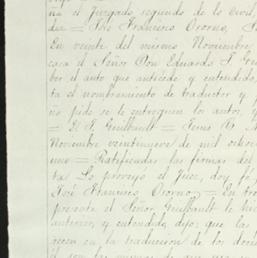 na el Juzgado segundo de lo civil
doz = José Francisco Orozno,
En veinte del mismo Noviembre
casa el Señor Don Eduardo F. Gui
ber el auto que antecede y entendido
ta el nombramiento de traductor y
ño pide se le entreguen los autos, y
= E. F. Guilbault = Tomo
Noviembre veintinueve de mil ochoci
uno = Ratificadas las firmas del
ta Lo proveyó el Juez, doy fé
José Francisco Orozno = En tre
presente el Señor Guilbault le hi
anterior, y entendido dijo: que las
recen en la traducción de los docu